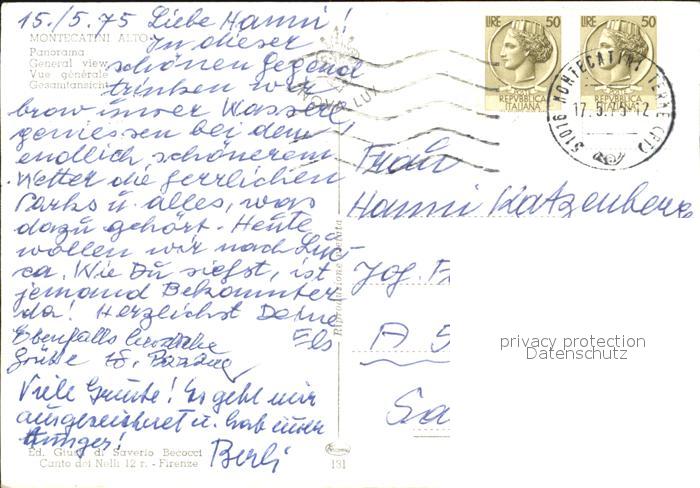 15./5.75 Liebe Hanni!
MONTECATINI ALTO
Panorama
General view
Vue générale
Gesamtansicht
In dieser
schönen Gegend
trinken wir
brav unser Wasser,
geniessen bei dem
endlich schönerem
Wetter die herrlichen
Parks u. alles, was
dazu gehört. Heute
wollen wir nach Luc-
ca. Wie Du siehst, ist
jemand Bekannter
da! Herzlichst Deine
Els
Ebenfalls herzliche
Grüsse
Viele Grüsse! Es geht mir
ausgezeichnet u. hab immer
Hunger!
Berli
Ed. Giusti di Saverio Becocci
Canto dei Nelli 12 r. - Firenze
131
Riproduzione vietata
LIRE 50
REPVBBLICA
ITALIANA
LIRE 50
REPVBBLICA
ITALIANA
51016 MONTECATINI TERME (PT)
17.5.75-12
Frau
Hanni Katzenberg
A 5
privacy protection
Datenschutz